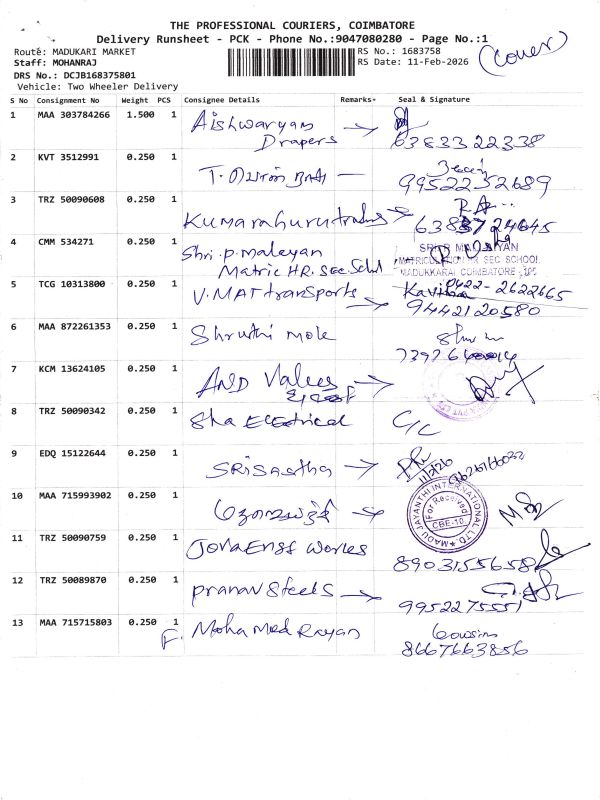 THE PROFESSIONAL COURIERS, COIMBATORE
Delivery Runsheet - PCK - Phone No.:9047080280 - Page No.:1
(Cover)
Route: MADUKARI MARKET
RS No.: 1683758
Staff: MOHANRAJ
RS Date: 11-Feb-2026
DRS No.: DCJB168375801
Vehicle: Two Wheeler Delivery
S No Consignment No Weight PCS Consignee Details Remarks Seal & Signature
1 MAA 303784266 1.500 1 Aishwaryam
Drapers 6383322338
2 KVT 3512991 0.250 1
9952252689
3 TRZ 50090608 0.250 1
Kumaraguru
4 CMM 534271 0.250 1 Shri.P.Maleyan
Matric HR. Sec. Schol
MATRICULATION HR SEC SCHOOL
MADUKKARAI COIMBATORE
5 TCG 10313800 0.250 1 V.MAT transports Kavitha 0422-2622665
9442120580
6 MAA 872261353 0.250 1 Shruthi mole
7 KCM 13624105 0.250 1 AND Valves
8 TRZ 50090342 0.250 1 Sha Electrical C/C
9 EDQ 15122644 0.250 1 SRI Saastha
11/2/26
10 MAA 715993902 0.250 1
MADU JAYANTHI INTERNATIONAL LTD
For Received
CBE-10
11 TRZ 50090759 0.250 1 Jova Engg Works
8903155658
12 TRZ 50089870 0.250 1 Pranav Steels
9952275551
13 MAA 715715803 0.250 1 Mohamed Rayan
F
8667663856